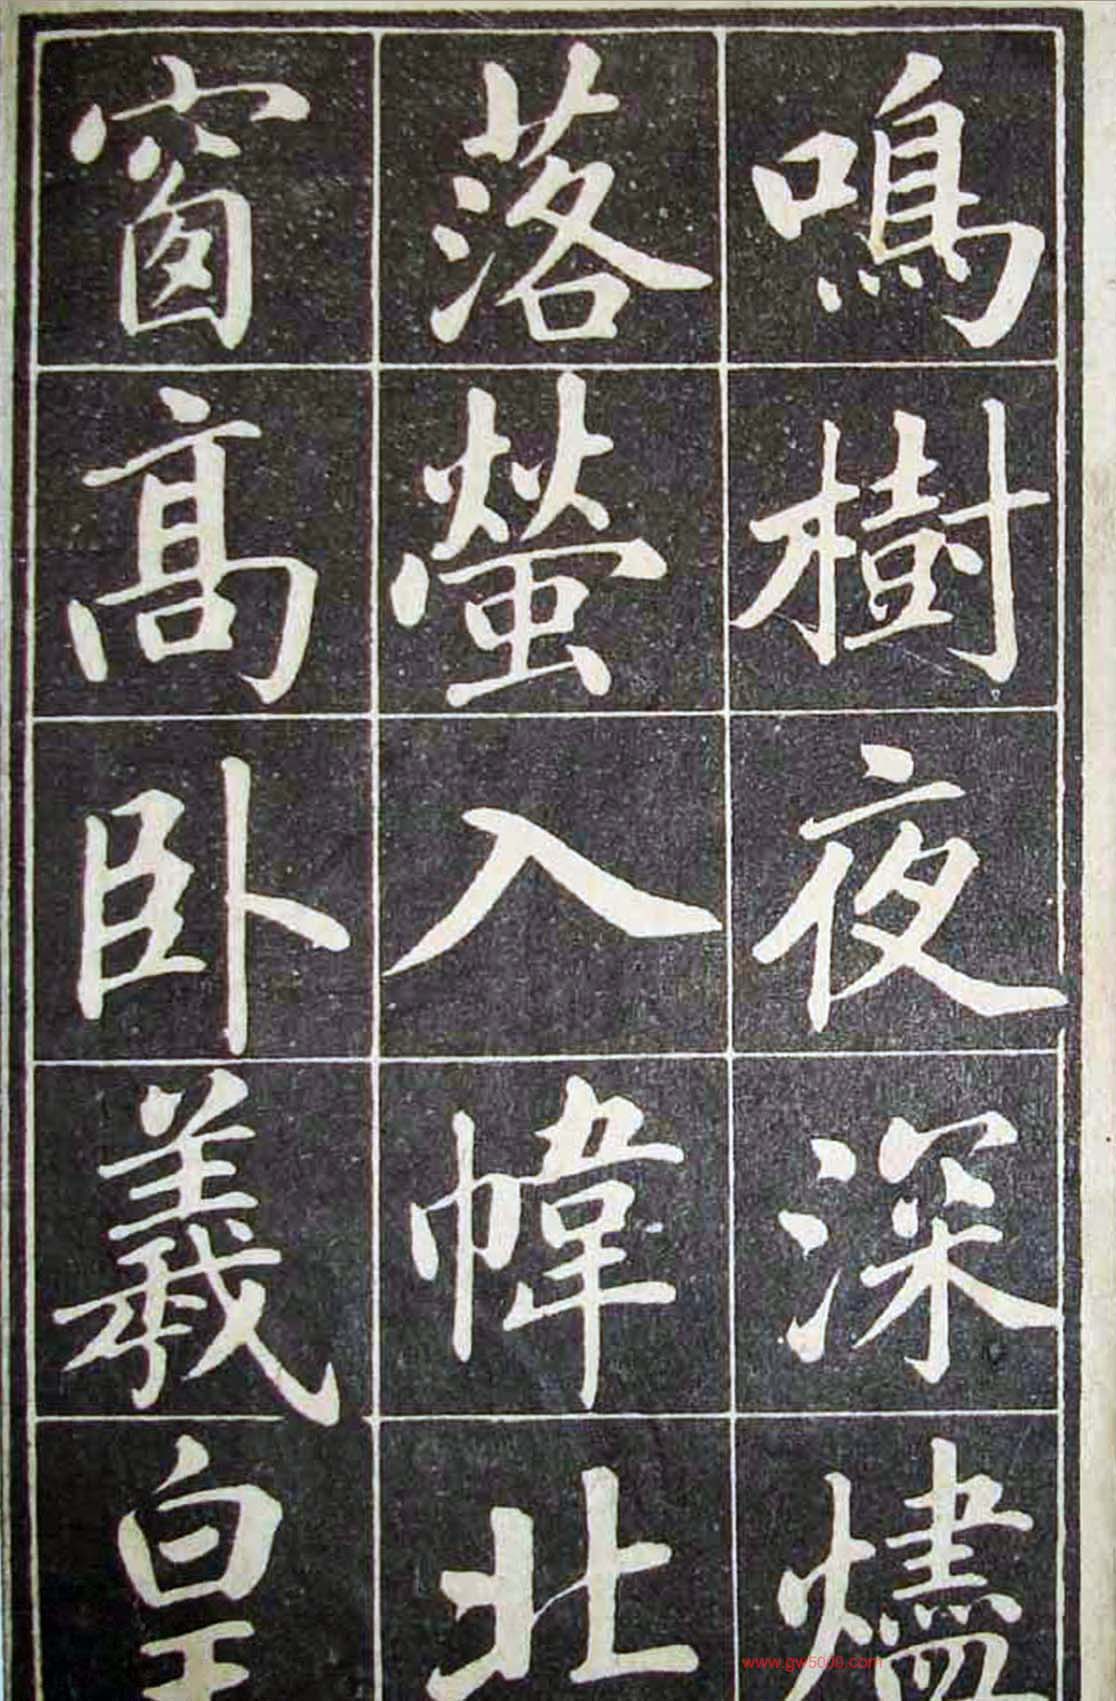 鳴樹夜深燼
落螢入幃北
窗高卧羲皇
www.gw5000.com